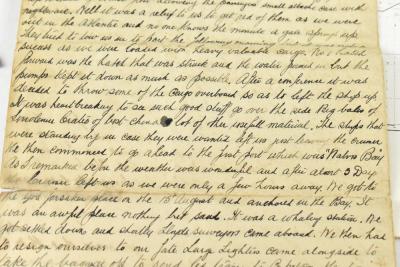 the passengers small attache case with
nightwear. Well it was a relief to us to get rid of them as we were
out in the Atlantic and no one knows the minute a gale springs up.
They tried to tow us to port the
success as we were loaded with heavy valuable cargo. No 2 hatch
forward was the hatch that was struck and the water poured in but the
pumps kept it down as much as possible. After a conference it was
decided to throw some of the Cargo overboard so as to lift the ship up.
It was heartbreaking to see such good stuff go over the side Big bales of
Linoleum Crates of best china lot of other usefull material. The ships that
were standing by in case they were wanted left us just leaving the cruiser
We then commenced to go ahead to the first port which was "Walvis Bay"
As I remarked before the weather was wonderful and after about 3 Days
cruiser left us as we were only a few hours away. We got to
the God forsaken place on the August and anchored in the Bay. It
was an awful place nothing but sand. It was a whaling station. We
got settled down and shortly Lloyds surveyors came aboard. We then had
to resign ourselves to our fate Large Lighters came alongside to
take the